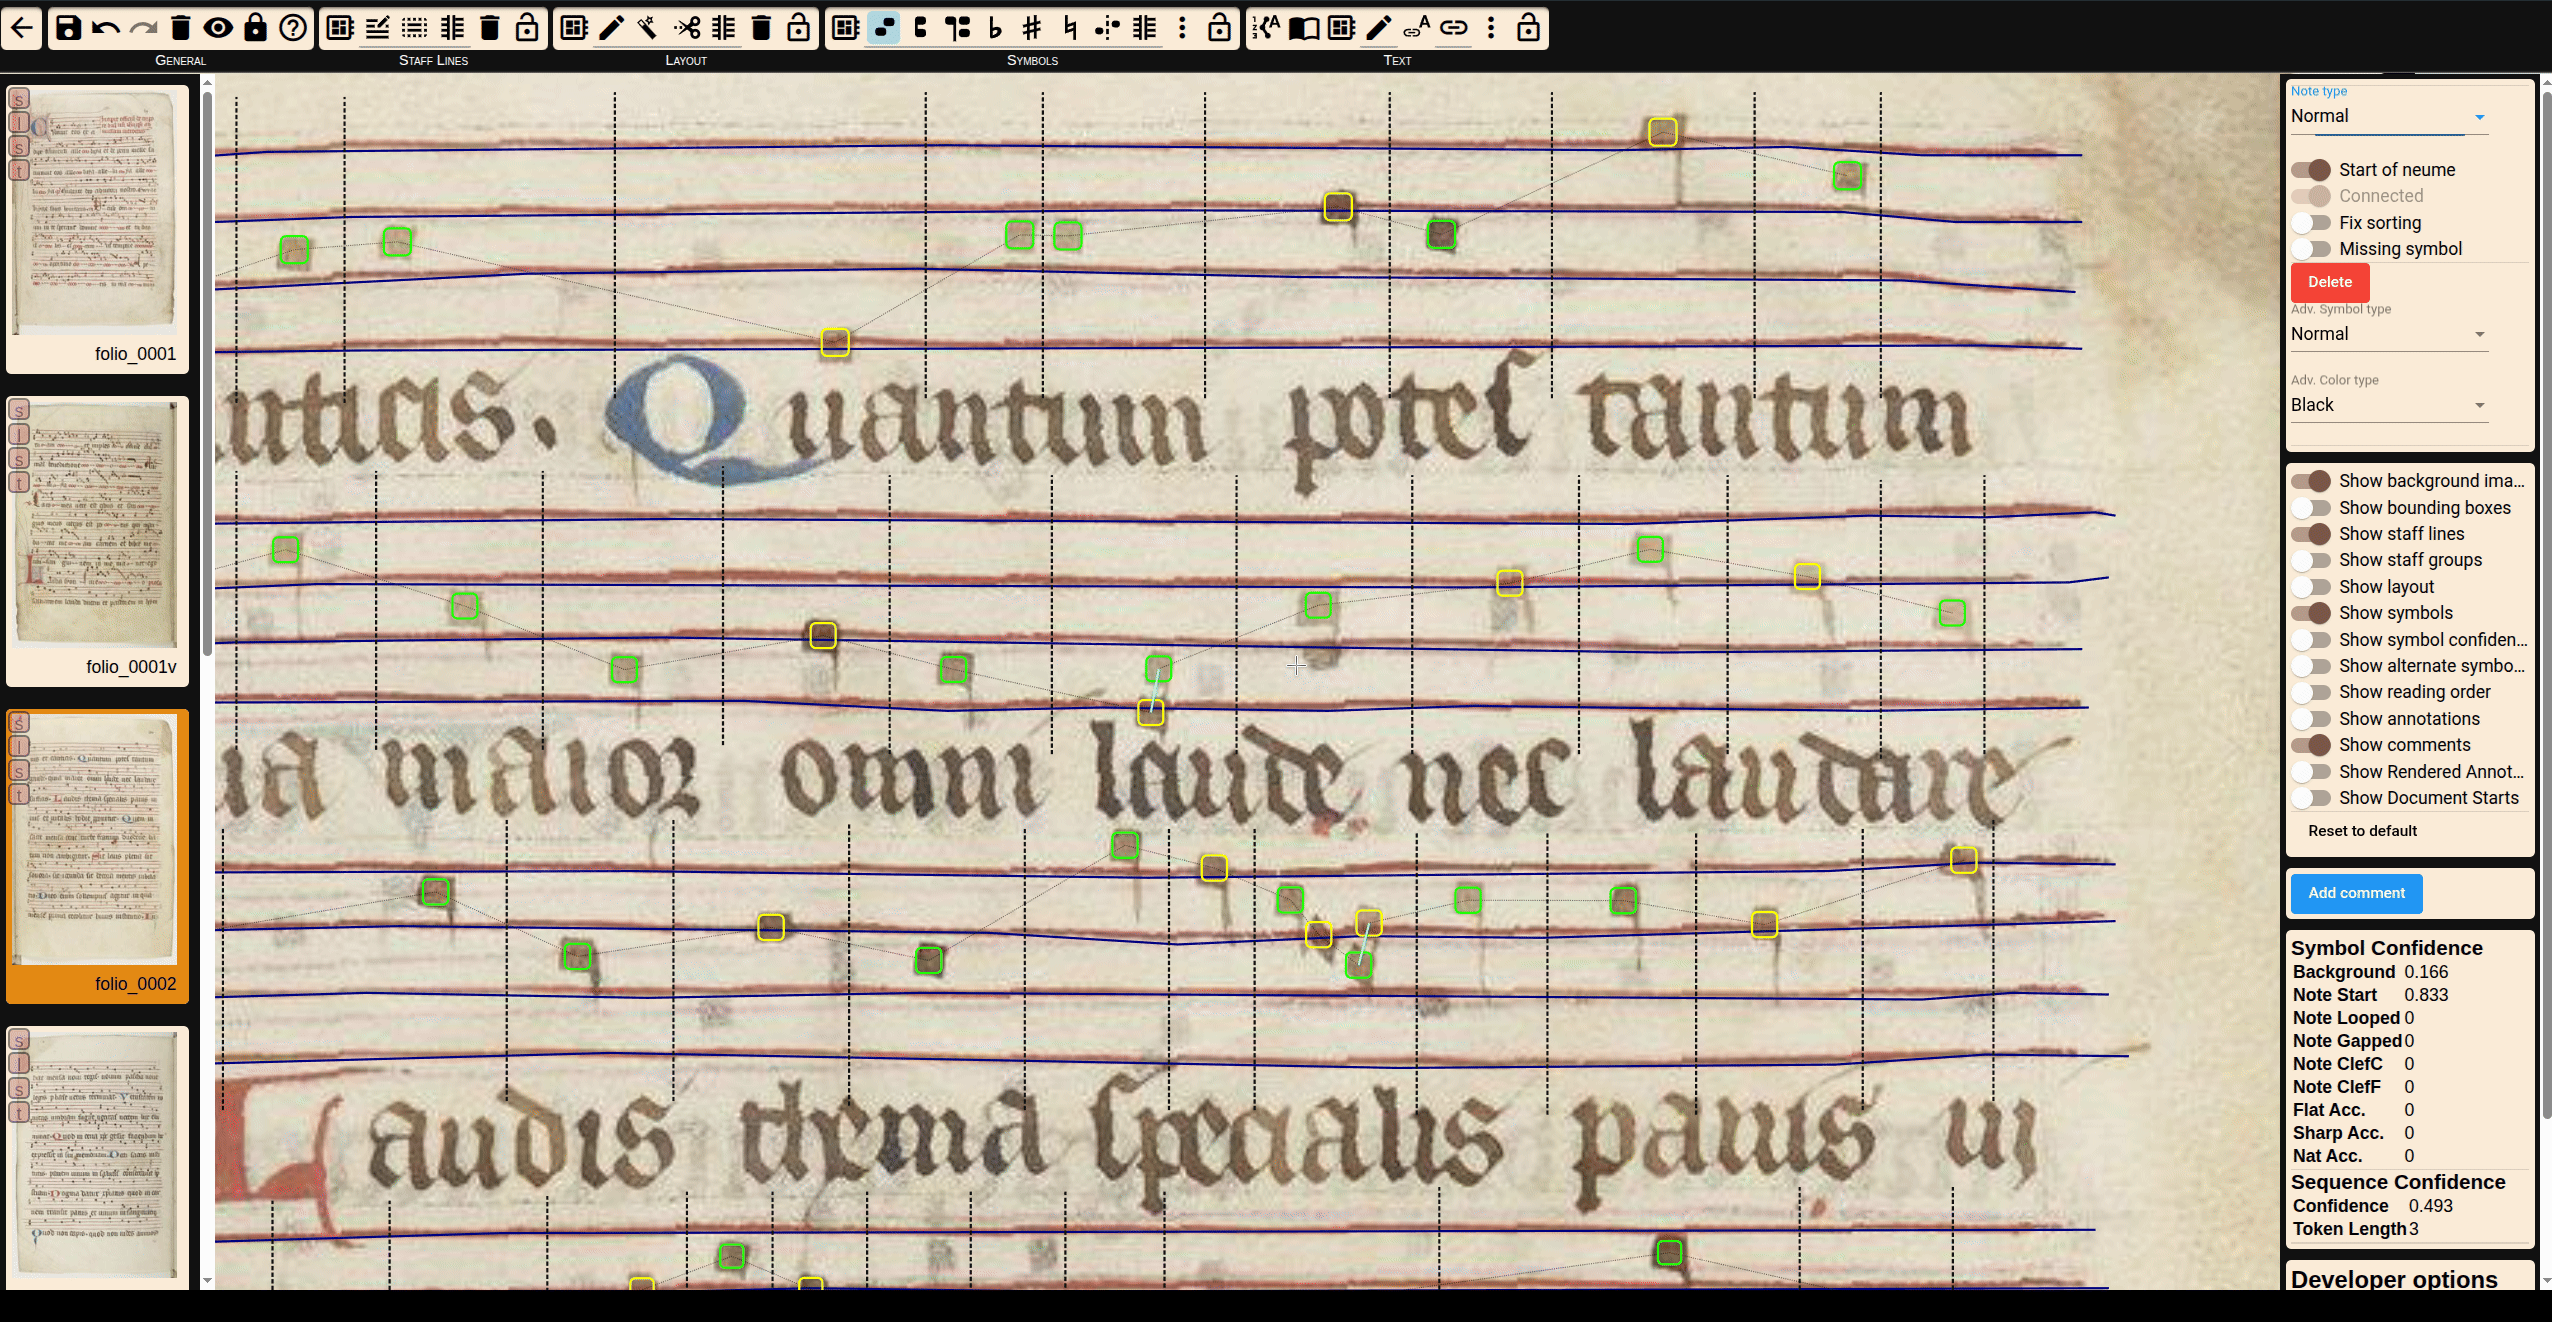 General
Staff Lines
Layout
Symbols
Text
folio_0001
folio_0001v
folio_0002
s
l
s
t
s
l
s
t
s
l
s
t
s
l
s
t
nticis. Quantum potes tantum
ia maior omni laude nec laudare
Laudis thema specialis panis ui
Note type
Normal
Start of neume
Connected
Fix sorting
Missing symbol
Delete
Adv. Symbol type
Normal
Adv. Color type
Black
Show background ima...
Show bounding boxes
Show staff lines
Show staff groups
Show layout
Show symbols
Show symbol confiden...
Show alternate symbo...
Show reading order
Show annotations
Show comments
Show Rendered Annot...
Show Document Starts
Reset to default
Add comment
Symbol Confidence
Background 0.166
Note Start 0.833
Note Looped 0
Note Gapped 0
Note ClefC 0
Note ClefF 0
Flat Acc. 0
Sharp Acc. 0
Nat Acc. 0
Sequence Confidence
Confidence 0.493
Token Length 3
Developer options